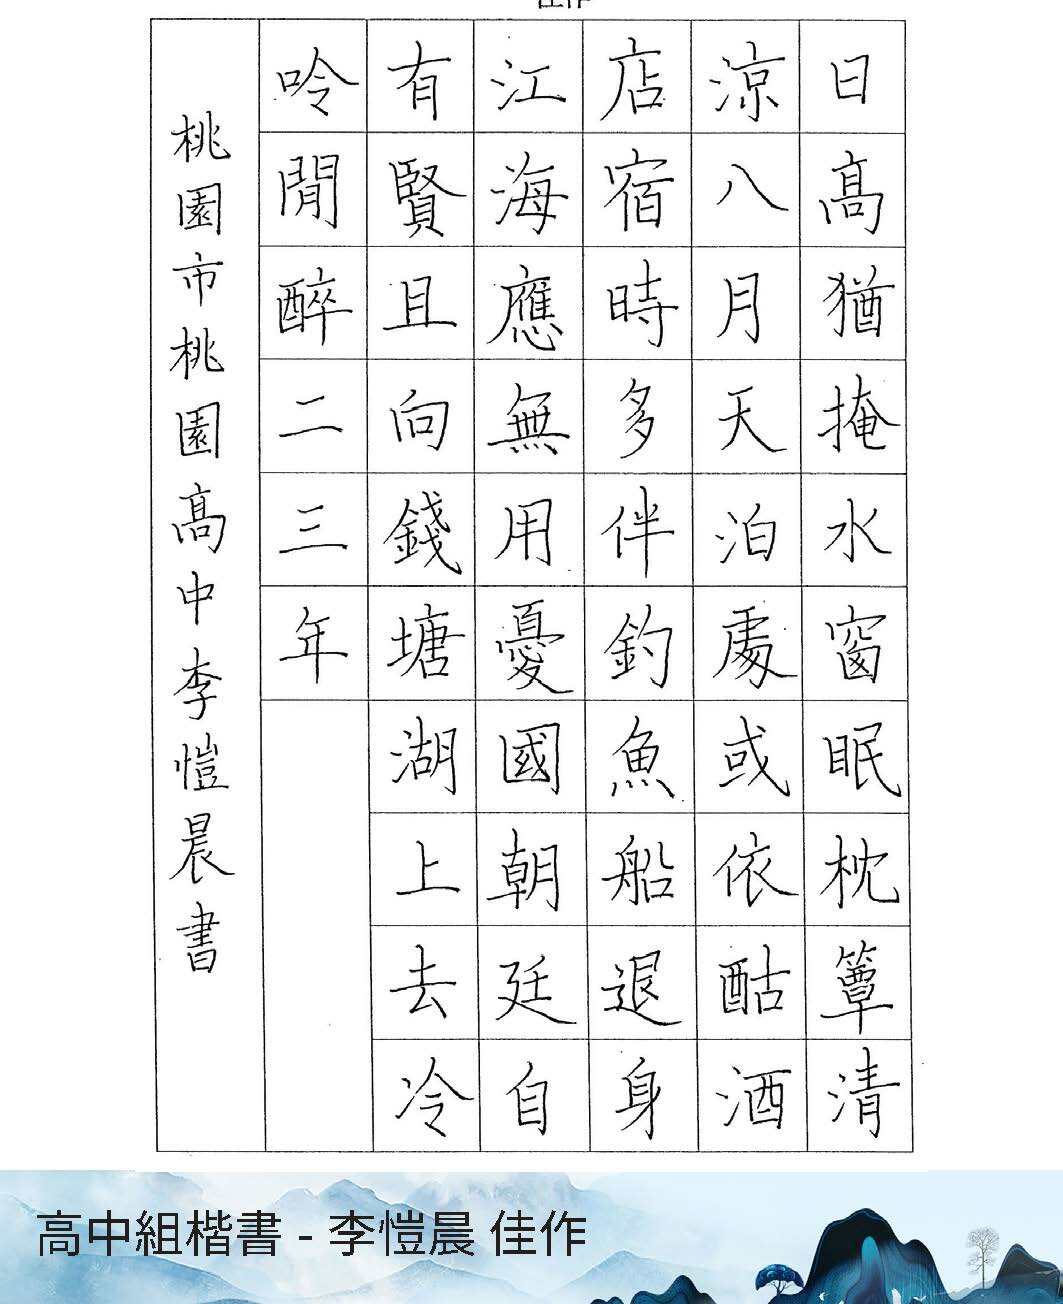 日高猶掩水窗眠枕簟清
涼八月天泊處或依酤酒
店宿時多伴釣魚船退身
江海應無用憂國朝廷自
有賢且向錢塘湖上去冷
吟閒醉二三年
桃園市桃園高中李愷晨書
高中組楷書 - 李愷晨 佳作